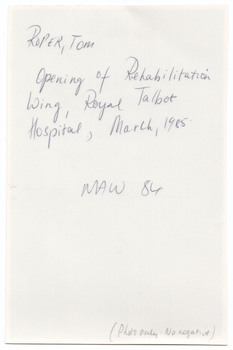 ROPER, TOM
Opening of Rehabilitation
Wing, Royal Talbot
Hospital, March, 1985
MAW 84
(Photo only No negative)